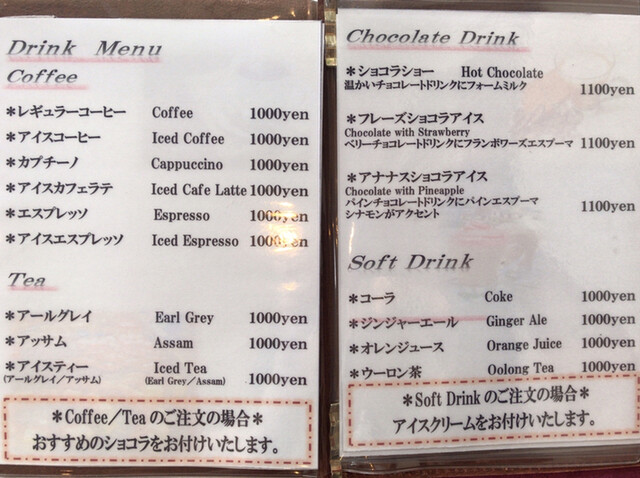 Drink Menu
Coffee
＊レギュラーコーヒー Coffee 1000yen
＊アイスコーヒー Iced Coffee 1000yen
＊カプチーノ Cappuccino 1000yen
＊アイスカフェラテ Iced Cafe Latte 1000yen
＊エスプレッソ Espresso 1000yen
＊アイスエスプレッソ Iced Espresso 1000yen
Tea
＊アールグレイ Earl Grey 1000yen
＊アッサム Assam 1000yen
＊アイスティー Iced Tea 1000yen
(アールグレイ/アッサム) (Earl Grey/Assam)
＊Coffee／Tea のご注文の場合＊
おすすめのショコラをお付けいたします。
Chocolate Drink
＊ショコラショー Hot Chocolate
温かいチョコレートドリンクにフォームミルク 1100yen
＊フレーズショコラアイス
Chocolate with Strawberry
ベリーチョコレートドリンクにフランボワーズエスプーマ 1100yen
＊アナナスショコラアイス
Chocolate with Pineapple
パインチョコレートドリンクにパインエスプーマ 1100yen
シナモンがアクセント
Soft Drink
＊コーラ Coke 1000yen
＊ジンジャーエール Ginger Ale 1000yen
＊オレンジュース Orange Juice 1000yen
＊ウーロン茶 Oolong Tea 1000yen
＊Soft Drink のご注文の場合＊
アイスクリームをお付けいたします。